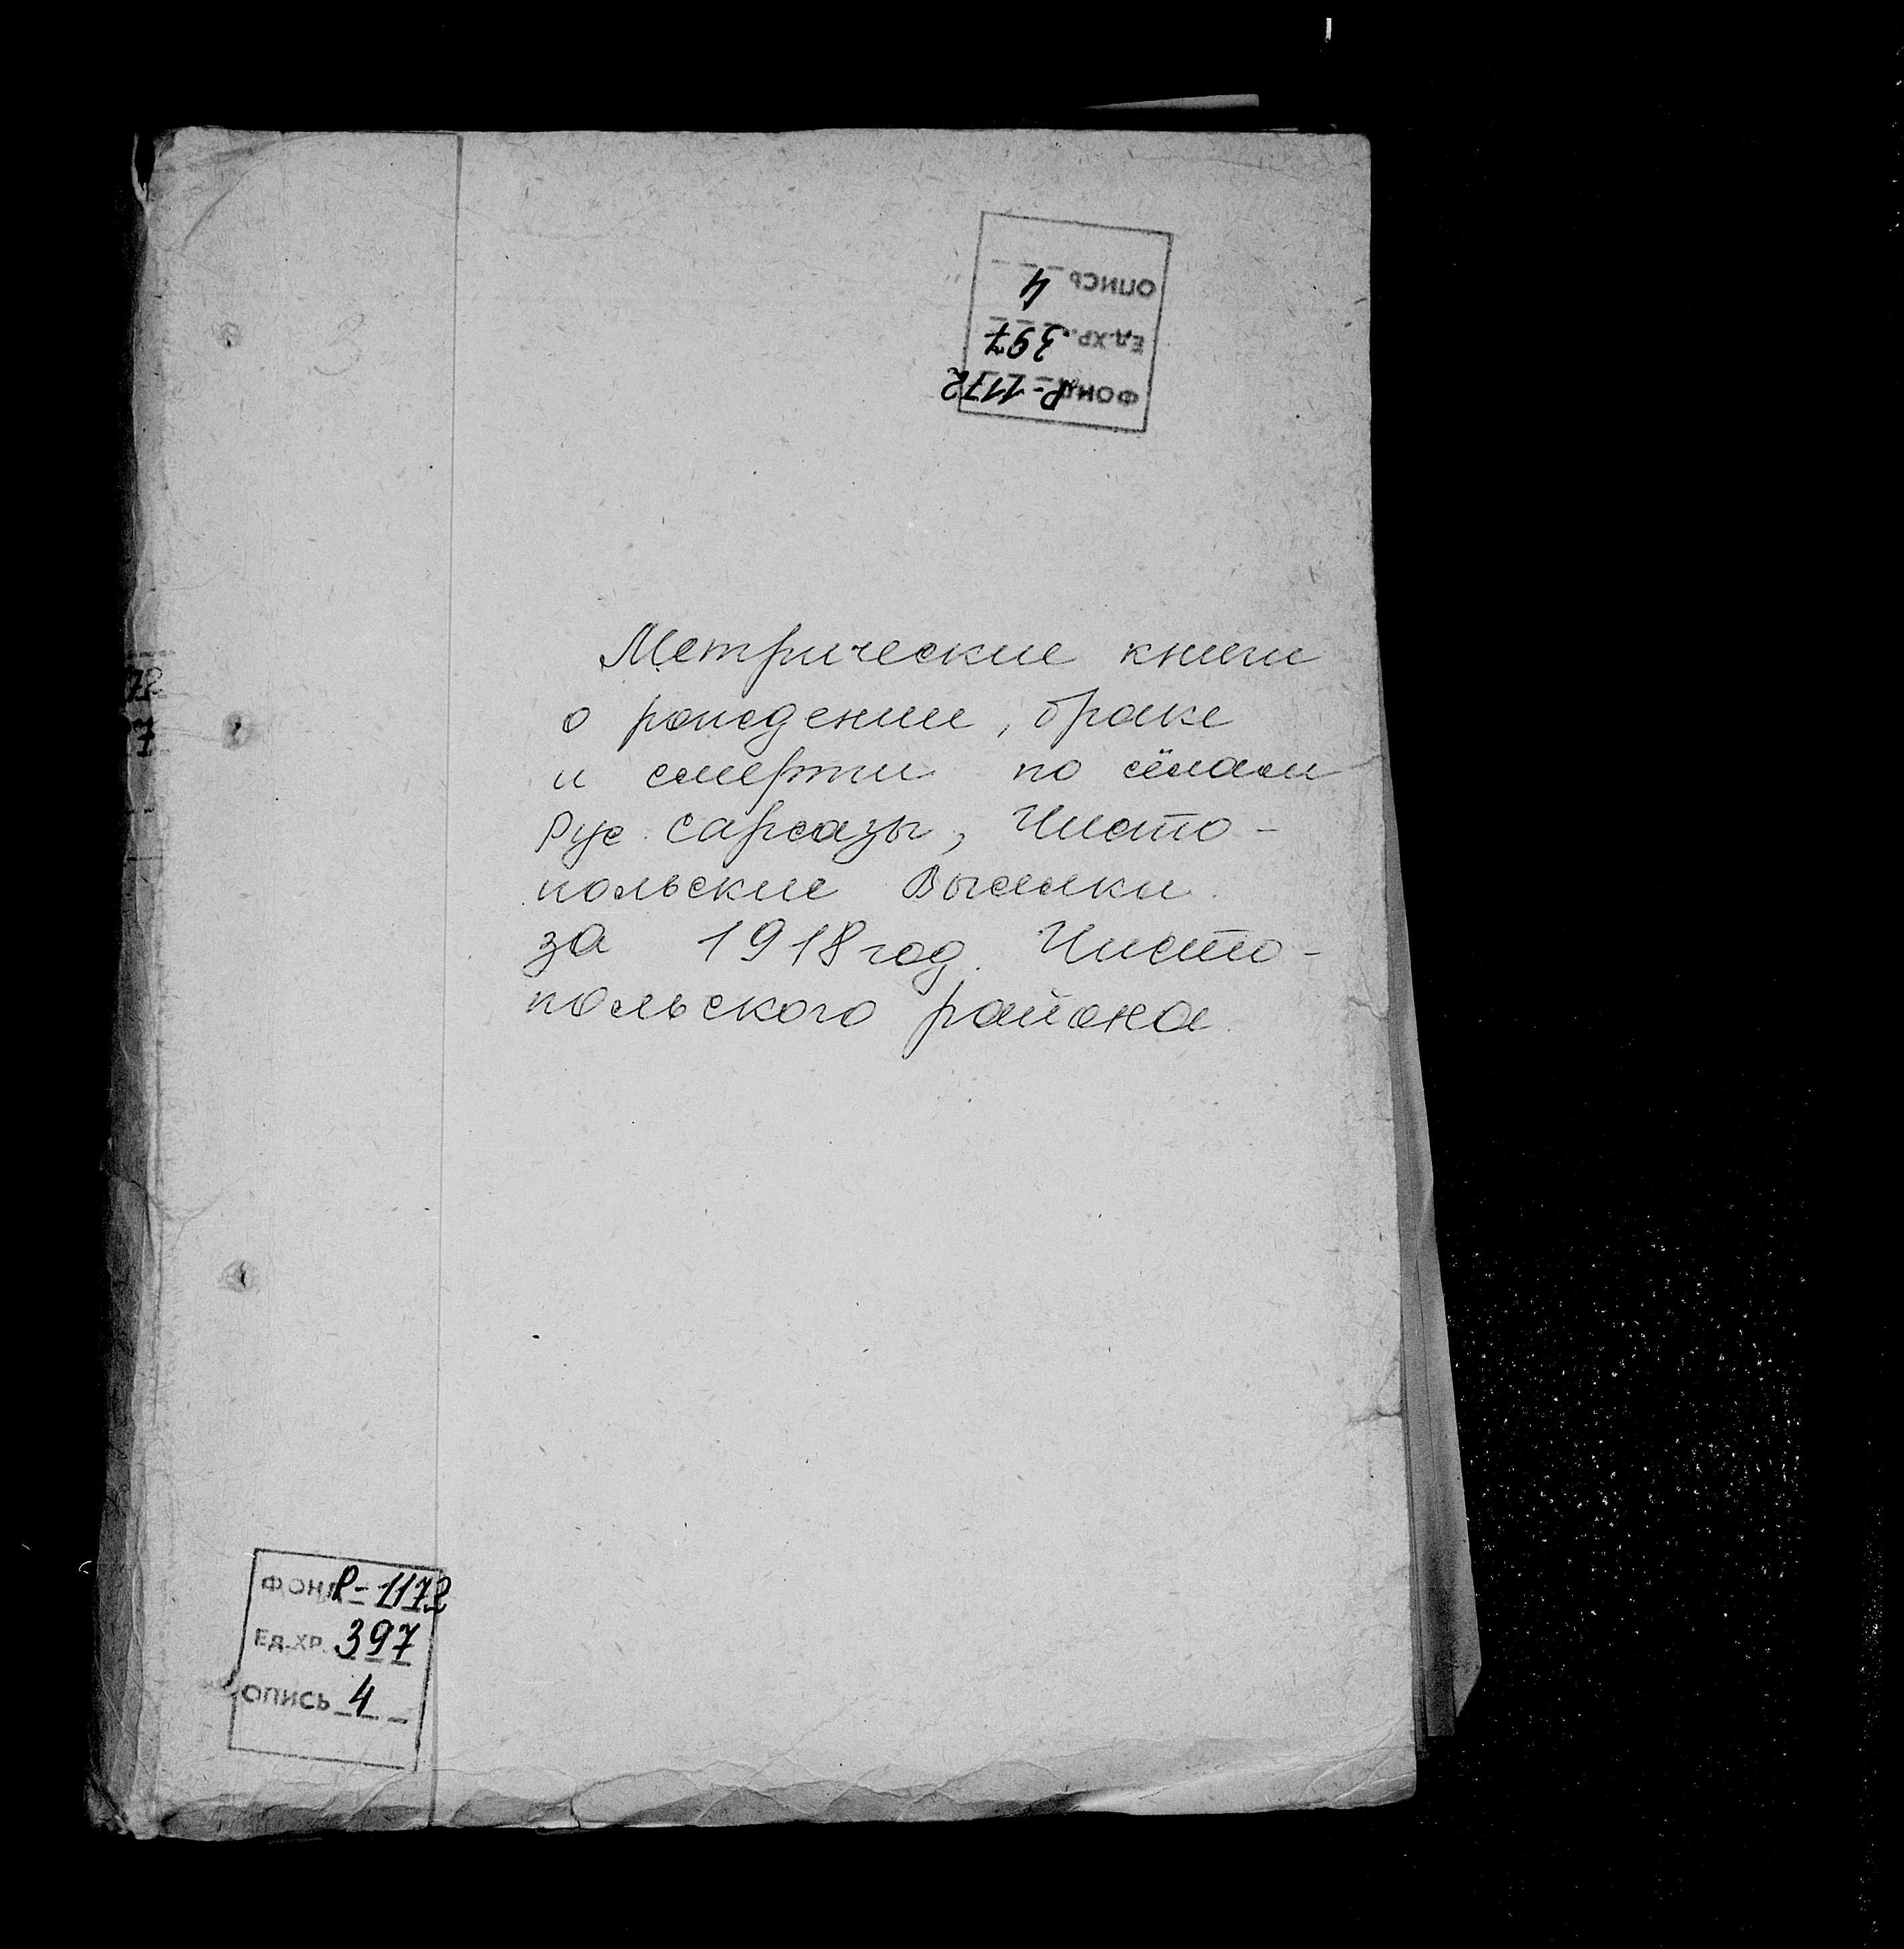 ОПИСЬ 4
ЕД.ХР. 397
ФОНД Р-1172
3
Метрические книги
о рождении, браке
и смерти по сёлам
Рус. Сарсазы, Чисто-
польские Выселки
за 1918 год. Чисто-
польского района.
72
7
ФОНД Р-1172
ЕД.ХР. 397
ОПИСЬ 4